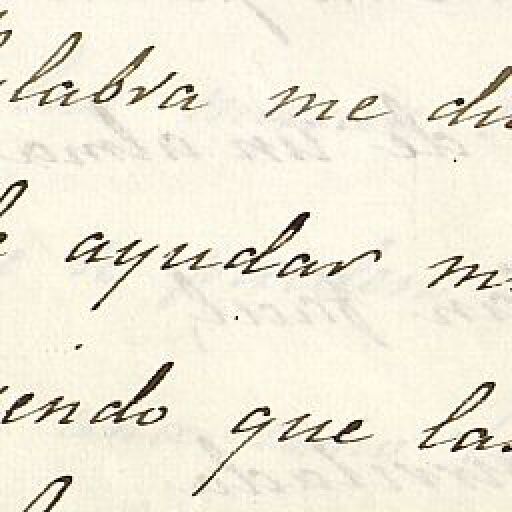 labra me du
ayudar m
endo que la